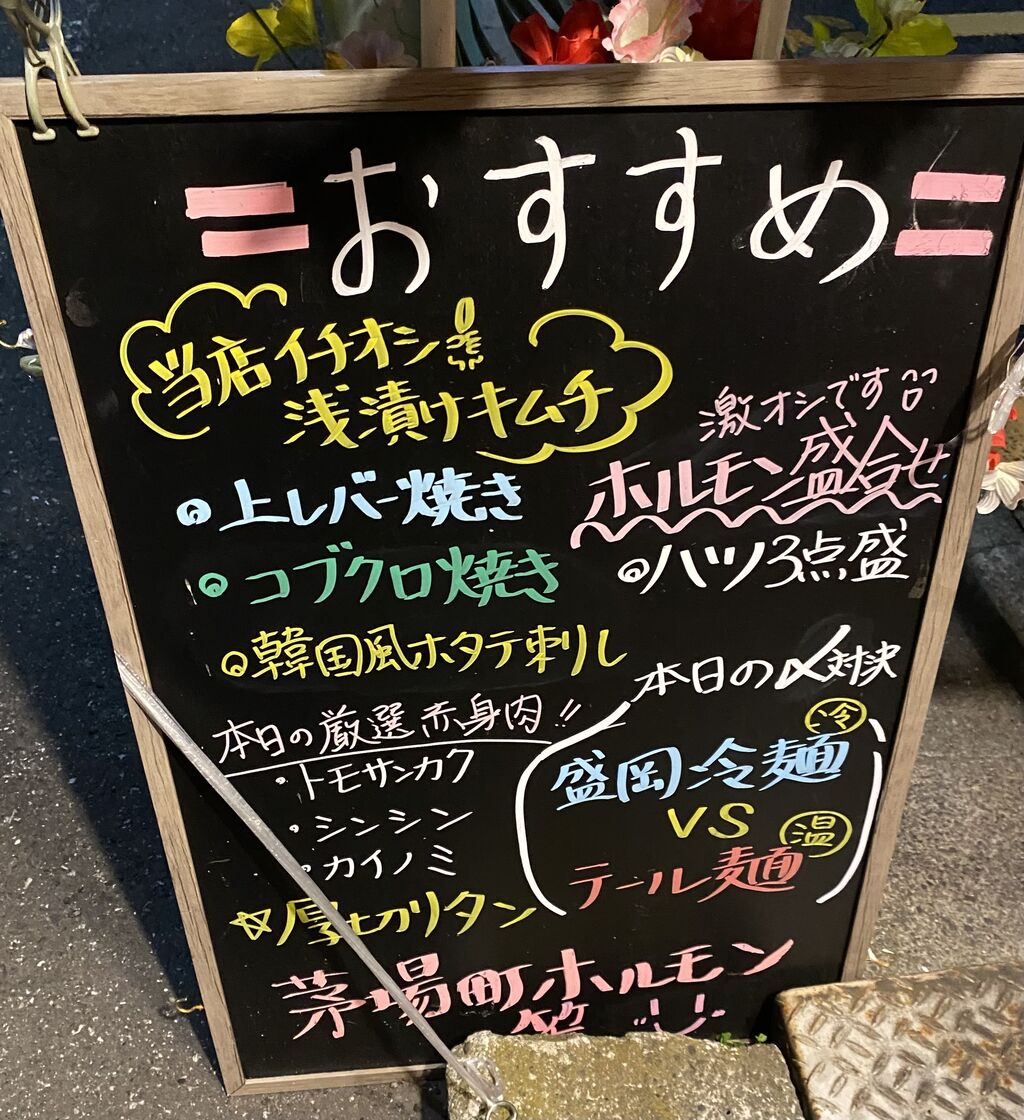 =おすすめ=
当店イチオシ
浅漬けキムチ
上レバー焼き
コブクロ焼き
韓国風ホタテ刺し
激オシです
ホルモン盛合せ
ハツ3点盛
本日の厳選赤身肉!!
・トモサンカク
・シンシン
・カイノミ
☆厚切りタン
本日の〆対決
冷
盛岡冷麺
VS
温
テール麺
茅場町ホルモン